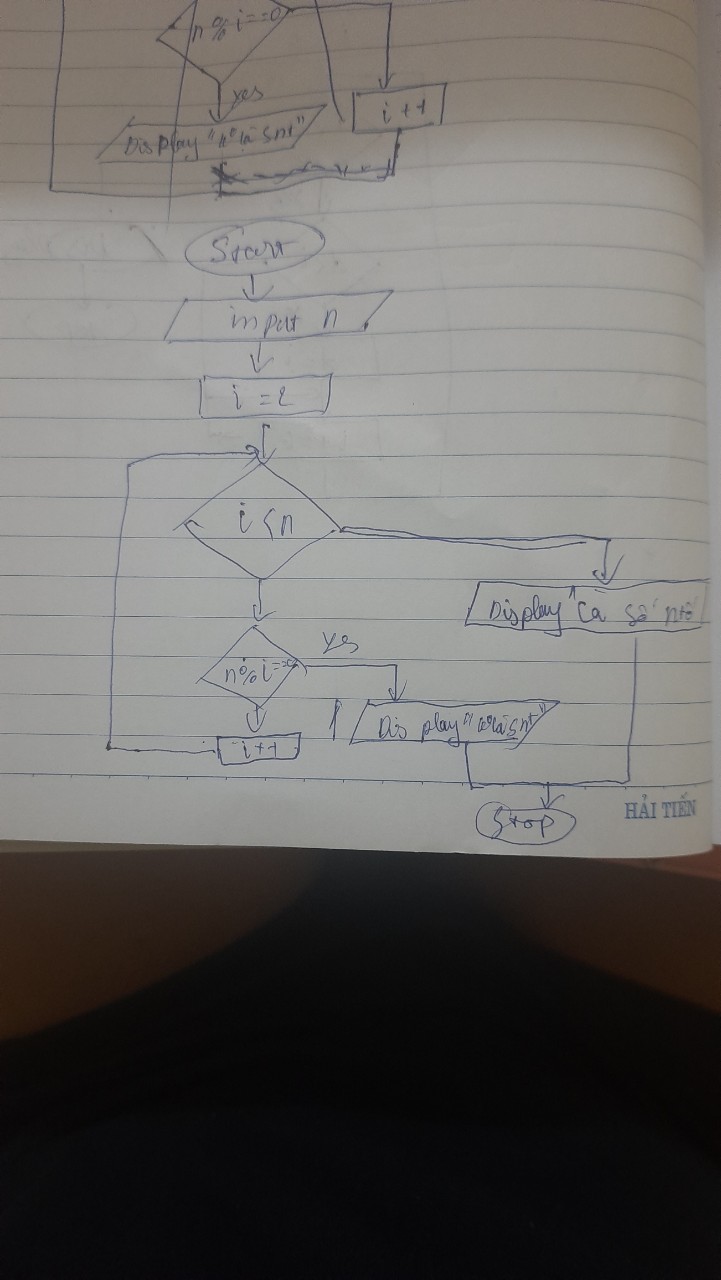 n%i==0
yes
i++
Display "k° là snt"
Start
input n
i = 2
i < n
Display "là số ntố"
n%i==0
yes
Display "k° là snt"
i++
HẢI TIẾN
Stop